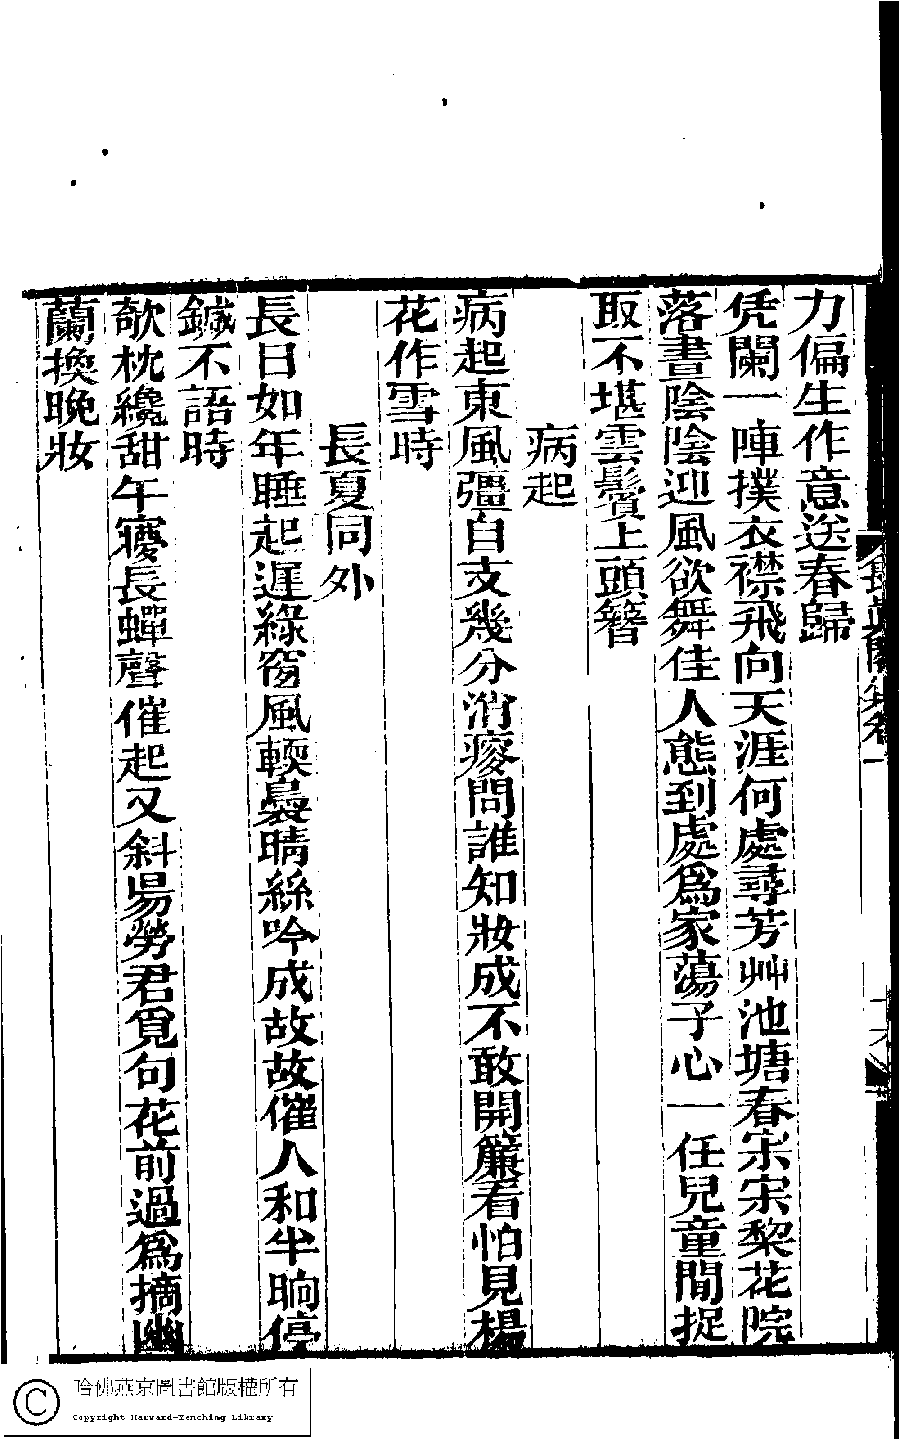 力偏生作意送春歸
凭闌一陣撲衣襟飛向天涯何處尋芳艸池塘春宗宗棃花院
落晝陰陰迎風欲舞佳人態到處爲家蕩子心一任兒童閒捉
取不堪雲鬢上頭簪
病起
病起東風彊自支幾分消瘦問誰知妝成不敢開簾看怕見楊
花作雪時
長夏同外
長日如年睡起遲綠窗風輭裊晴絲吟成故故催人和半晌停
鍼不語時
欹枕纔甜午寢長蟬聲催起又斜昜勞君覓句花前過爲摘幽
蘭換晚妝
長真閣集卷一
哈佛燕京圖書館版權所有
Copyright Harvard-Yenching Library